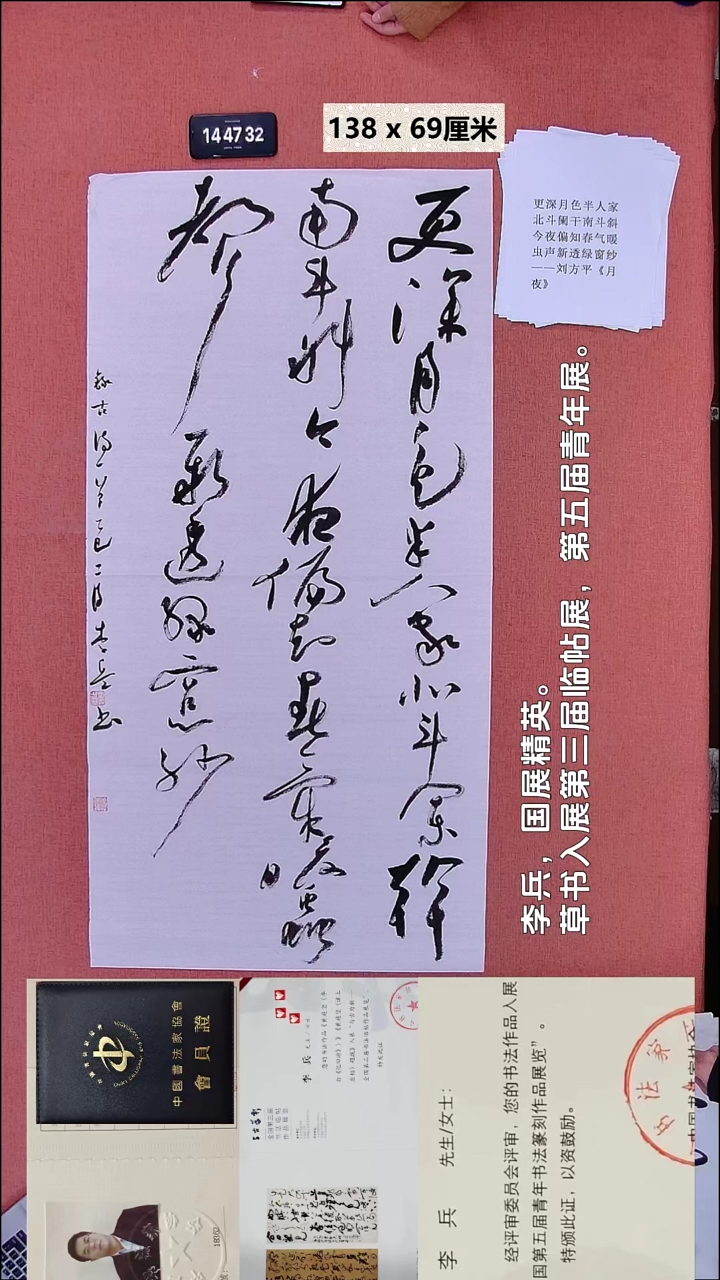 14 47 32
138 x 69厘米
更深月色半人家
北斗阑干南斗斜
今夜偏知春气暖
虫声新透绿窗纱
——刘方平《月
夜》
更深月色半人家北斗阑幹
南斗斜今夜偏知春气暖蟲
声新透绿窗纱
李兵，国展精英。
草书入展第三届临帖展，第五届青年展。
中國書法家協會
會員證
李兵
李兵 先生/女士:
经评审委员会评审，您的书法作品入展
国第五届青年书法篆刻作品展览”。
特颁此证，以资鼓励。